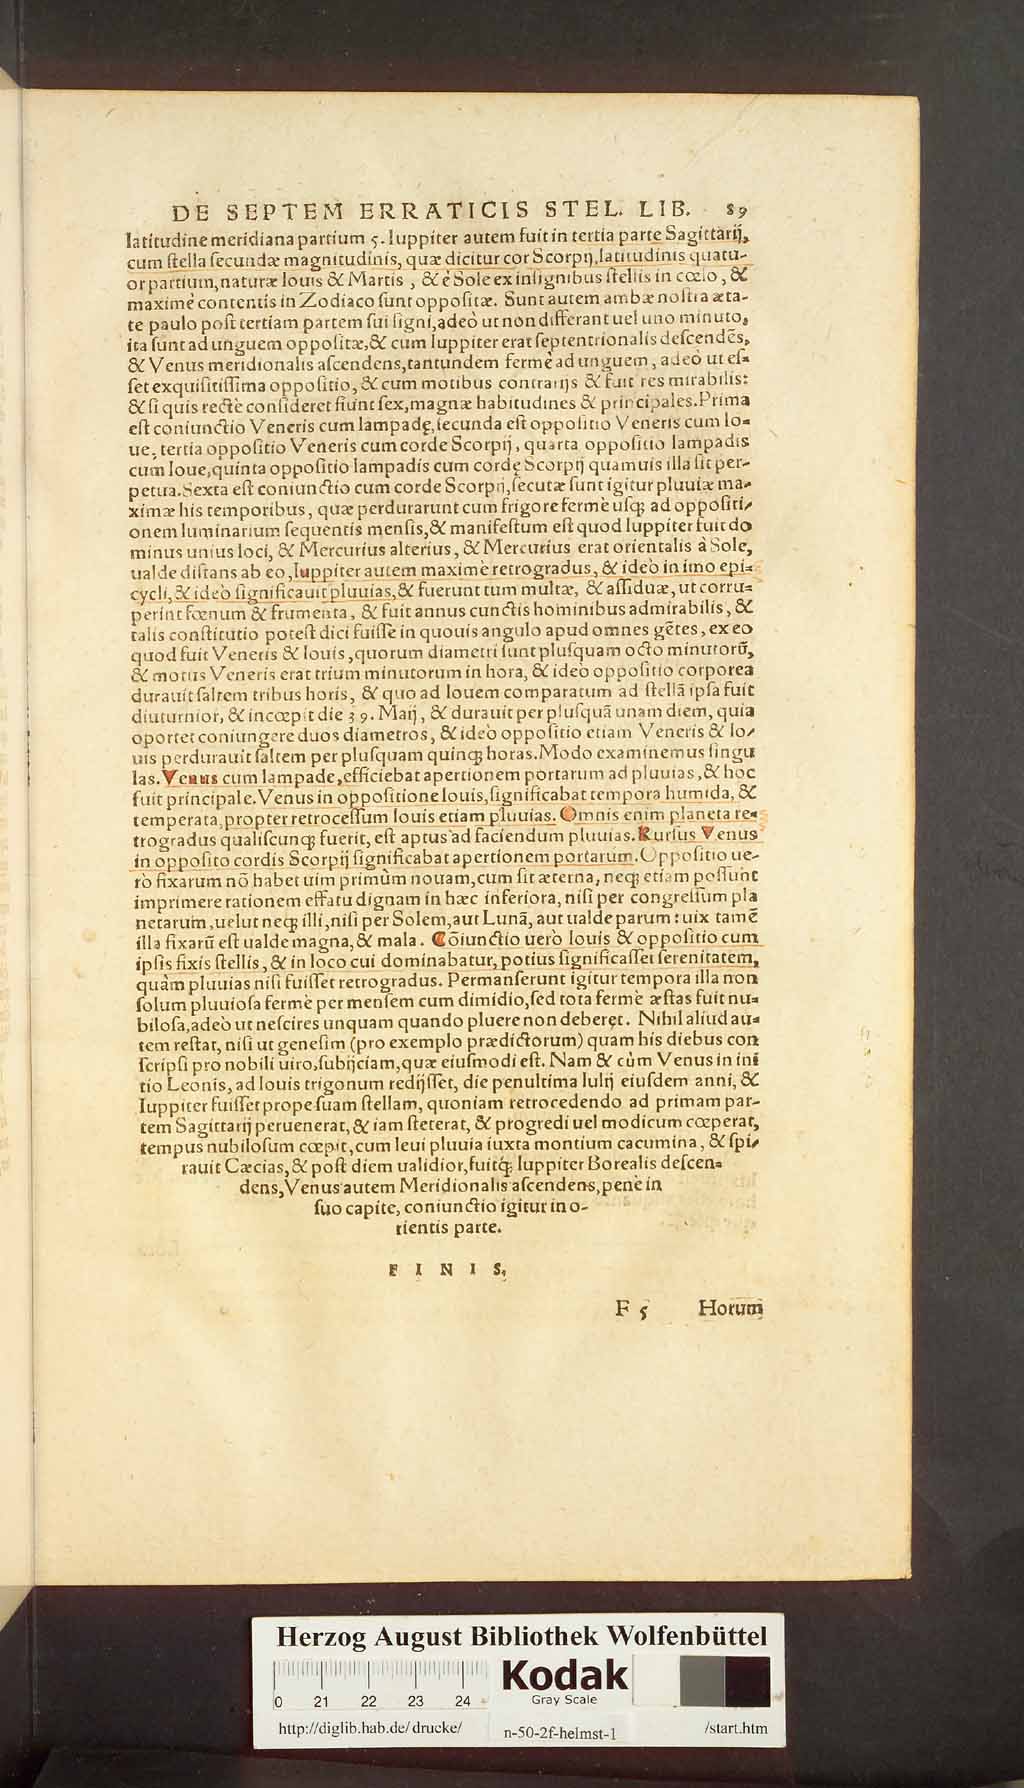 DE SEPTEM ERRATICIS STEL. LIB. 89
latitudine meridiana partium 5. Iuppiter autem fuit in tertia parte Sagittarij,
cum stella secundæ magnitudinis, quæ dicitur cor Scorpij, latitudinis quatu-
or partium, naturæ Iouis & Martis, & è Sole ex insignibus stellis in cœlo, &
maximè contentis in Zodiaco sunt oppositæ. Sunt autem ambæ nostra æta-
te paulo post tertiam partem sui signi, adeò ut non differant uel uno minuto,
ita sunt ad unguem oppositæ, & cum Iuppiter erat septentrionalis descendẽs,
& Venus meridionalis ascendens, tantundem fermè ad unguem, adeò ut es-
set exquisitissima oppositio, & cum motibus contrarijs & fuit res mirabilis:
& si quis rectè consideret fiunt sex, magnæ habitudines & principales. Prima
est coniunctio Veneris cum lampade, secunda est oppositio Veneris cum Io-
ue, tertia oppositio Veneris cum corde Scorpij, quarta oppositio lampadis
cum Ioue, quinta oppositio lampadis cum corde Scorpij quamuis illa sit per-
petua. Sexta est coniunctio cum corde Scorpij, secutæ sunt igitur pluuiæ ma-
ximæ his temporibus, quæ perdurarunt cum frigore fermè usq; ad oppositi-
onem luminarium sequentis mensis, & manifestum est quod Iuppiter fuit do
minus unius loci, & Mercurius alterius, & Mercurius erat orientalis à Sole,
ualde distans ab eo, Iuppiter autem maximè retrogradus, & ideò in imo epi-
cycli, & ideò significauit pluuias, & fuerunt tum multæ, & assiduæ, ut corru-
perint fœnum & frumenta, & fuit annus cunctis hominibus admirabilis, &
talis constitutio potest dici fuisse in quouis angulo apud omnes gẽtes, ex eo
quod fuit Veneris & Iouis, quorum diametri sunt plusquam octo minutorũ,
& motus Veneris erat trium minutorum in hora, & ideò oppositio corporea
durauit saltem tribus horis, & quo ad Iouem comparatum ad stellã ipsa fuit
diuturnior, & incœpit die 39. Maij, & durauit per plusquã unam diem, quia
oportet coniungere duos diametros, & ideò oppositio etiam Veneris & Io-
uis perdurauit saltem per plusquam quinq; horas. Modo examinemus singu
las. Venus cum lampade, efficiebat apertionem portarum ad pluuias, & hoc
fuit principale. Venus in oppositione Iouis, significabat tempora humida, &
temperata, propter retrocessum Iouis etiam pluuias. Omnis enim planeta re-
trogradus qualiscunq; fuerit, est aptus ad faciendum pluuias. Rursus Venus
in opposito cordis Scorpij significabat apertionem portarum. Oppositio ue-
rò fixarum nõ habet uim primùm nouam, cum sit æterna, neq; etiam possunt
imprimere rationem effatu dignam in hæc inferiora, nisi per congressum pla
netarum, uelut neq; illi, nisi per Solem, aut Lunã, aut ualde parum: uix tamẽ
illa fixarũ est ualde magna, & mala. Cõiunctio uerò Iouis & oppositio cum
ipsis fixis stellis, & in loco cui dominabatur, potius significasset serenitatem,
quàm pluuias nisi fuisset retrogradus. Permanserunt igitur tempora illa non
solum pluuiosa fermè per mensem cum dimidio, sed tota fermè æstas fuit nu-
bilosa, adeò ut nescires unquam quando pluere non deberet. Nihil aliud au-
tem restat, nisi ut genesim (pro exemplo prædictorum) quam his diebus con
scripsi pro nobili uiro, subijciam, quæ eiusmodi est. Nam & cùm Venus in ini
tio Leonis, ad Iouis trigonum redijsset, die penultima Iulij eiusdem anni, &
Iuppiter fuisset prope suam stellam, quoniam retrocedendo ad primam par-
tem Sagittarij peruenerat, & iam steterat, & progredi uel modicum cœperat,
tempus nubilosum cœpit, cum leui pluuia iuxta montium cacumina, & spi-
rauit Cæcias, & post diem ualidior, fuitq́; Iuppiter Borealis descen-
dens, Venus autem Meridionalis ascendens, penè in
suo capite, coniunctio igitur in o-
rientis parte.
FINIS.
F 5 Horum
Herzog August Bibliothek Wolfenbüttel
0 21 22 23 24
Kodak
Gray Scale
http://diglib.hab.de/drucke/ n-50-2f-helmst-1 /start.htm